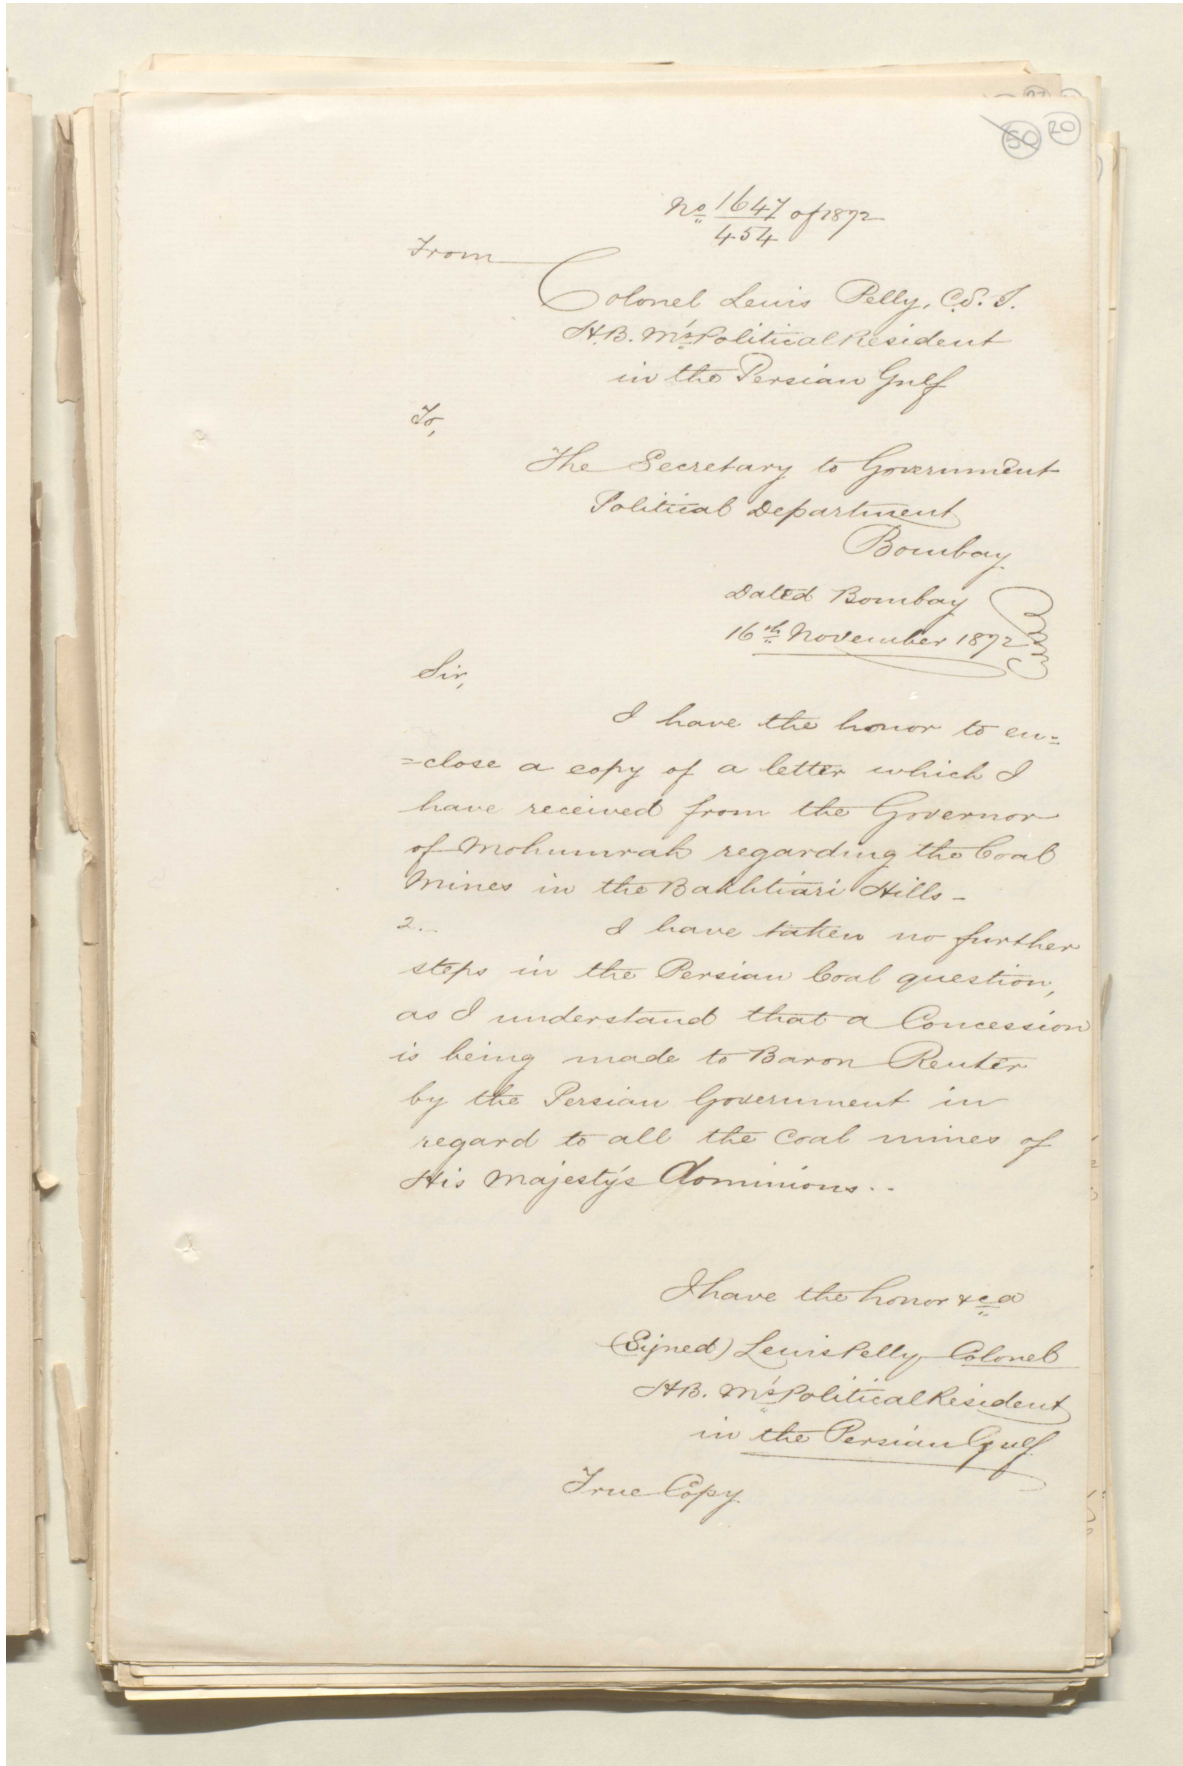 50 20
No 1647 of 1872
454
From
Colonel Lewis Pelly, C.S.I.
H.B. M's Political Resident
in the Persian Gulf
To,
The Secretary to Government
Political Department
Bombay
Dated Bombay
16th November 1872
Sir,
I have the honor to en=
=close a copy of a letter which I
have received from the Governor
of Mohumrah regarding the Coal
Mines in the Bakhtiari Hills_
2._ I have taken no further
steps in the Persian Coal question,
as I understand that a Concession
is being made to Baron Reuter
by the Persian Government in
regard to all the Coal mines of
His Majesty's dominions..
I have the honor &ca
(Signed) Lewis Pelly Colonel
H.B. M's Political Resident
in the Persian Gulf
True Copy